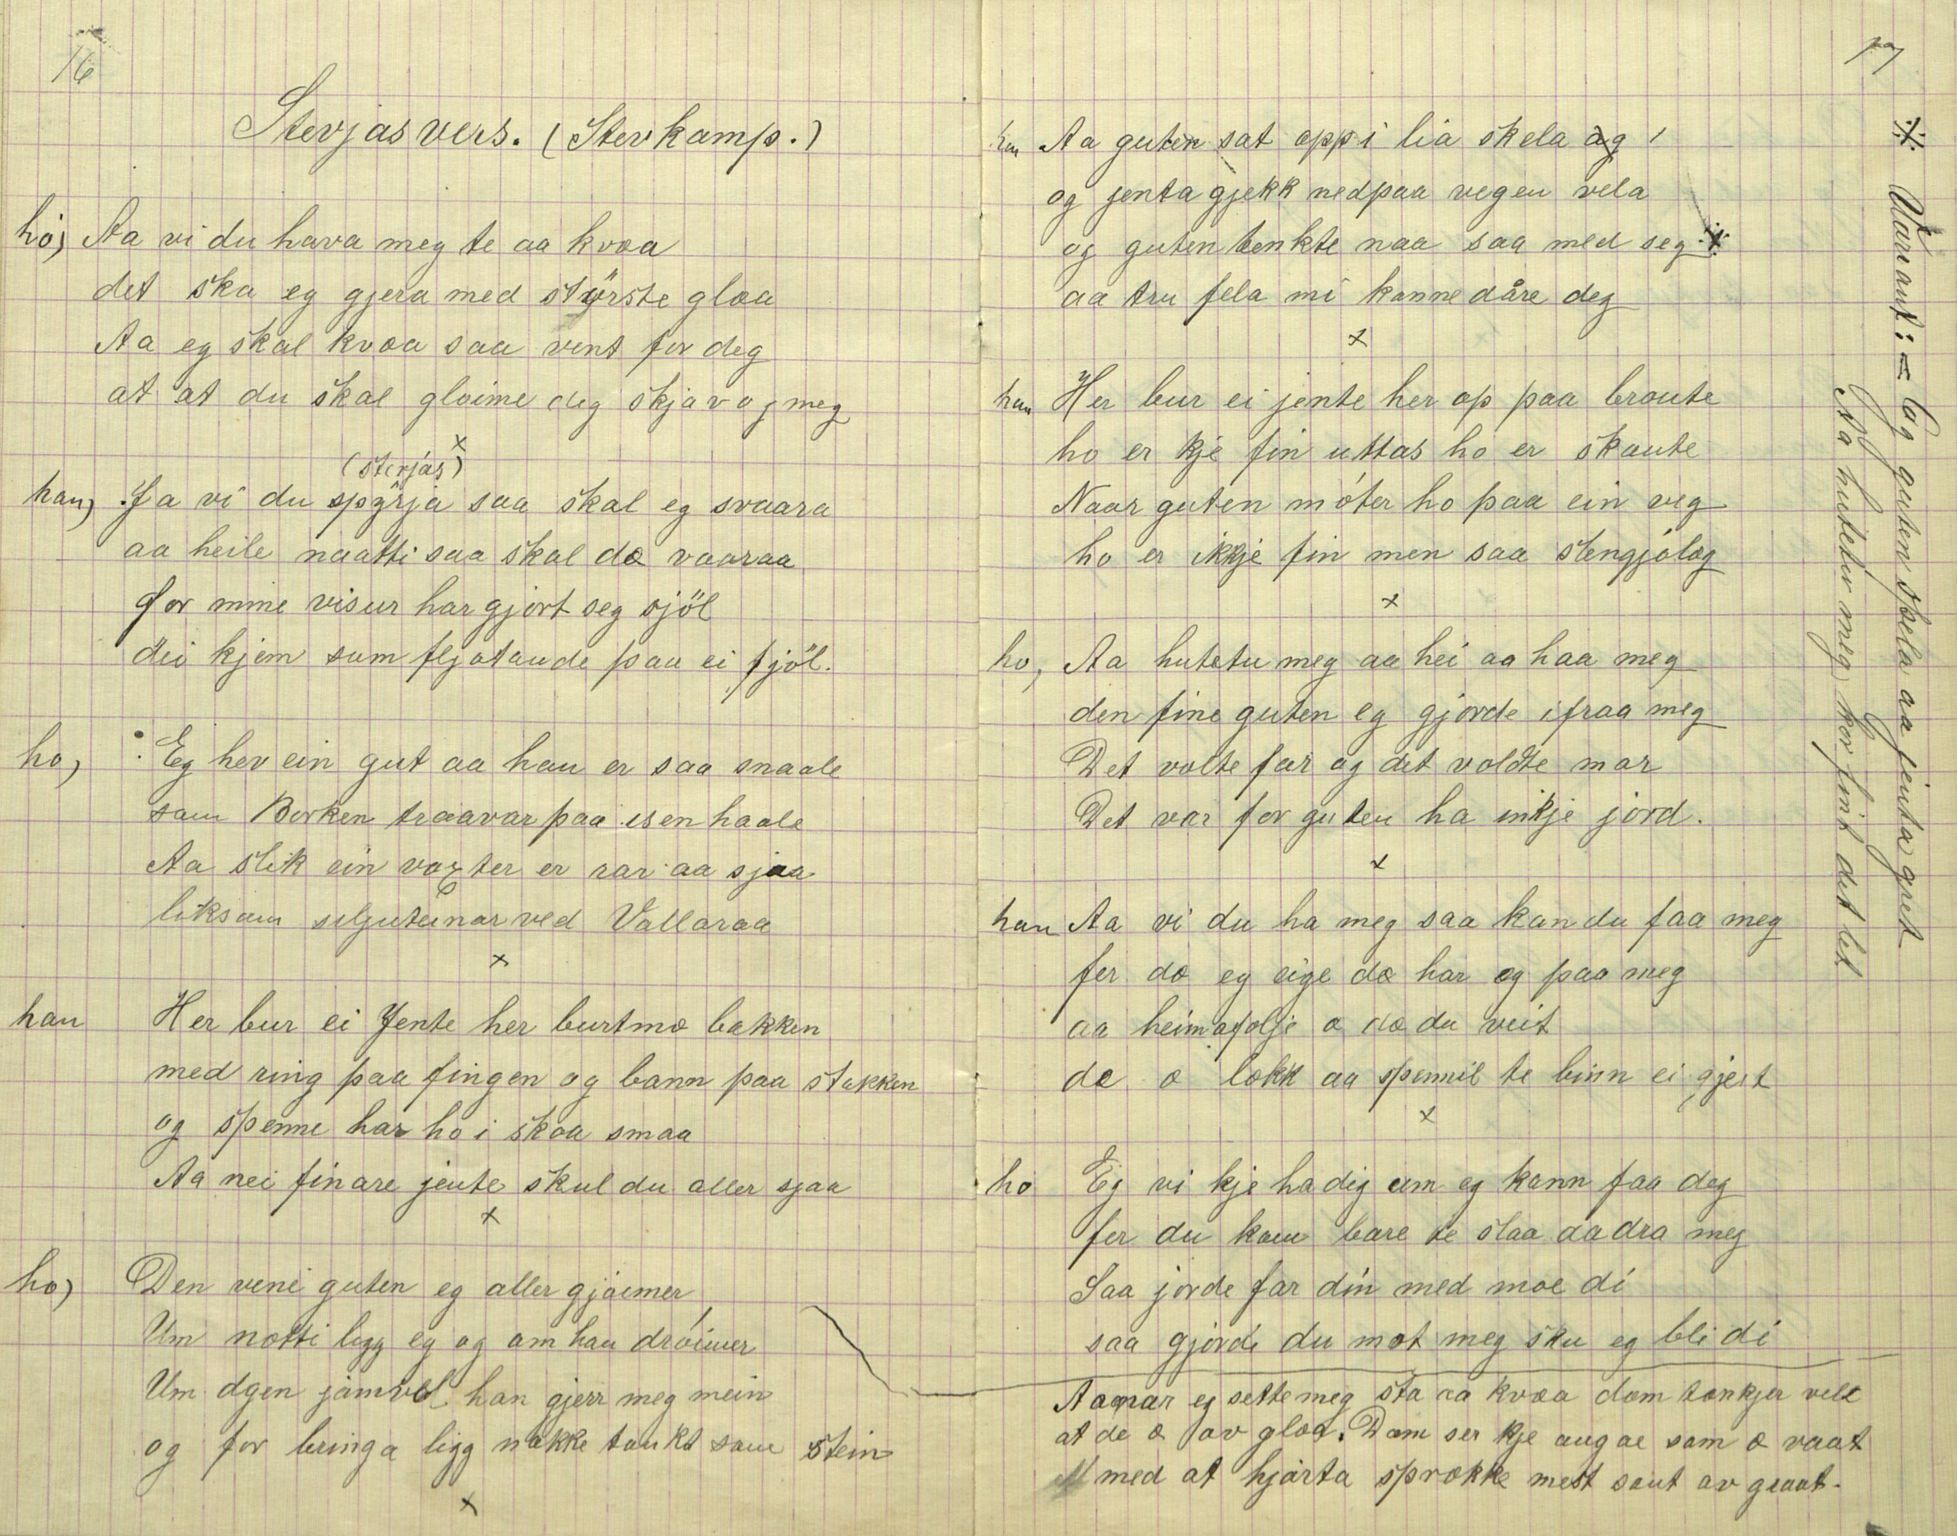 16
Stevjasvers. (Stevkamp.)
ho) Aa vi du hava meg te aa kvæa
det ska eg gjera med störste glæa
Aa eg skal kvæa saa vent for deg
at at du skal gløime deg skjøv og meg
x
(stevjas)
han) Ja vi du spyrja saa skal eg svaara
aa heile naatti saa skal dæ vaaraa
for mine visur har gjort seg sjöl
dei kjem sum fljotande paa ei fjöl.
ho) : Eg hev ein gut aa han er saa snaale
som Borken traavar paa isen haale
Aa slik ein voxter er rar aa sjaa
liksom selguteinar ved Vallaraa
x
han Her bur ei Jente her burtmæ bakken
med ring paa fingen og bann paa stakken
og spenne har ho i skoa smaa
Aa nei finare jente skul du aller sjaa
x
ho) Den veni guten eg aller gjøimer
Um notti ligg eg og om han dröimer
Um dgen jamvel han gjerr meg mein
og for bringa ligg nokke tunkt som stein
x
17
han Aa guten sat opp i lia skela og
og jenta gjekk nedpaa vegen vela
og guten tenkte naa saa med seg ※
aa tru fela mi kanne dåre deg
x
han Her bur ei jente her op paa broute
ho er kje fin uttas ho er skaute
Naar guten móter ho paa ein veg
ho er ikkje fin men saa slengjóleg
x
ho, Aa hutetu meg aa hei aa haa meg
den fine guten eg gjorde ifraa meg
Det volte far og det voldte mor
Det var for guten ha inkje jord.
x
han Aa vi du ha meg saa kan du faa meg
fer dæ eg eige dæ har eg paa meg
aa heimafolje æ dæ du veit
de æ lokk aa spennil te binn ei gjeit
x
ho Eg vi kje ha dig um eg kann faa deg
fer du kom bare te slaa aa dra meg
Saa jorde far din med moe di
saa gjorde du mot meg sku eg bli di
Aa naar eg sette meg sta aa kvæa dom tænkjer velt
at de æ av glæa. Dom ser kje augae som æ vaat
med at hjárta sprække mest sant av graat.
※ Variant: = Og guten spela aa jenta gret
Aa hutetu meg kor fint det let